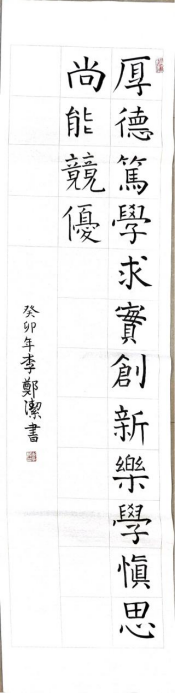 厚德篤學求實創新樂學慎思
尚能競優
癸卯年李鄭潔書